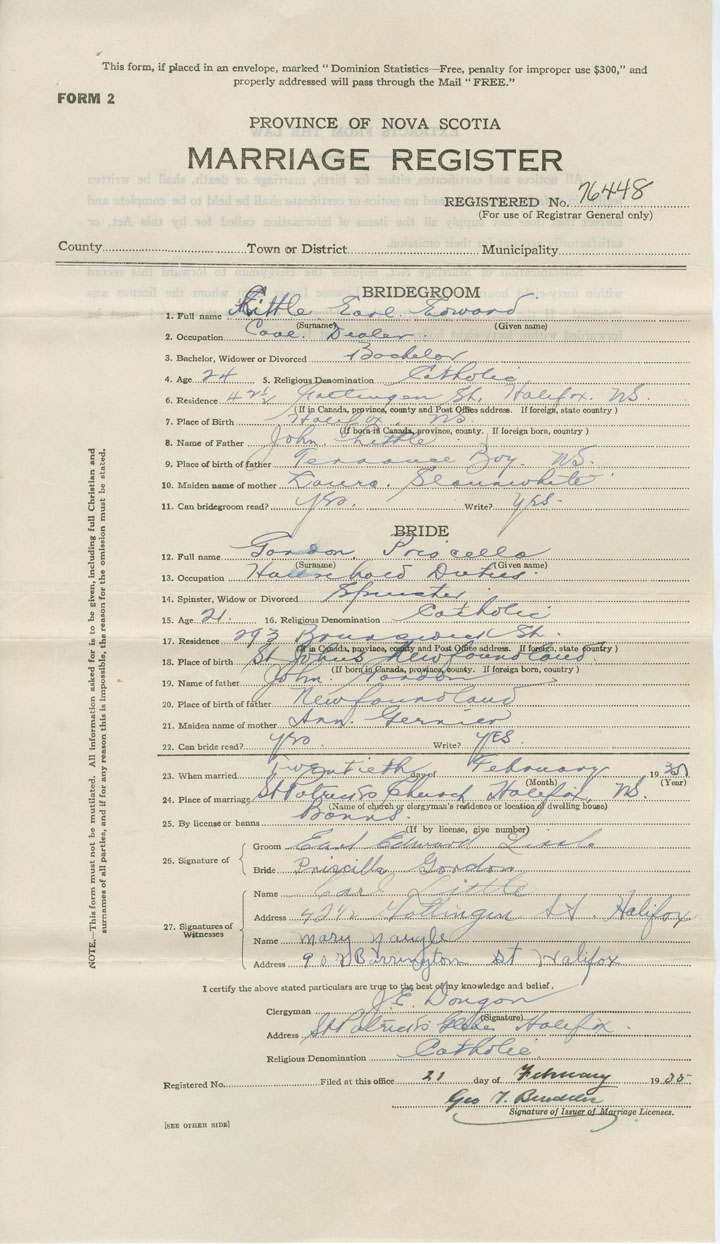 This form, if placed in an envelope, marked "Dominion Statistics—Free, penalty for improper use $300," and
properly addressed will pass through the Mail "FREE."
FORM 2
PROVINCE OF NOVA SCOTIA
MARRIAGE REGISTER
REGISTERED No. 76448
(For use of Registrar General only)
County Town or District Municipality
BRIDEGROOM
1. Full name Little Earl Edward
(Surname) (Given name)
2. Occupation Coal Dealer
3. Bachelor, Widower or Divorced Bachelor
4. Age 24 5. Religious Denomination Catholic
6. Residence 42½ Gottingen St. Halifax. NS.
(If in Canada, province, county and Post Office address. If foreign, state country)
7. Place of Birth Halifax NS
(If born in Canada, province, county. If foreign born, country)
8. Name of Father John Little
9. Place of birth of father Terrance Bay. NS.
10. Maiden name of mother Laura Slaunwhite
11. Can bridegroom read? yes. Write? yes
BRIDE
12. Full name Gordon Priscella
(Surname) (Given name)
13. Occupation Household Duties
14. Spinster, Widow or Divorced Spinster
15. Age 21. 16. Religious Denomination Catholic
17. Residence 293 Brunswick St.
(If in Canada, province, county and Post Office address. If foreign, state country)
18. Place of birth St Johns Newfoundland.
(If born in Canada, province, county. If foreign born, country)
19. Name of father John Gordon
20. Place of birth of father Newfoundland
21. Maiden name of mother Ann
22. Can bride read? yes Write? YES
23. When married Twentieth day of February 1935
(Month) (Year)
24. Place of marriage St Patrick's Church Halifax, NS.
(Name of church or clergyman's residence or location of dwelling house)
25. By license or banns Banns.
(If by license, give number)
26. Signature of
Groom Earl Edward Little
Bride Priscilla Gordon
27. Signatures of Witnesses
Name Carl Little
Address 42½ Gottingen St. Halifax
Name Mary
Address Barrington St Halifax
I certify the above stated particulars are true to the best of my knowledge and belief.
Clergyman J.E.
(Signature)
Address St Patrick's Glebe Halifax.
Religious Denomination Catholic.
Registered No. Filed at this office 21 day of February 1935
Geo T.
Signature of Issuer of Marriage Licenses.
[SEE OTHER SIDE]
NOTE.—This form must not be mutilated. All information asked for is to be given, including full Christian and
surnames of all parties, and if for any reason this is impossible, the reason for the omission must be stated.